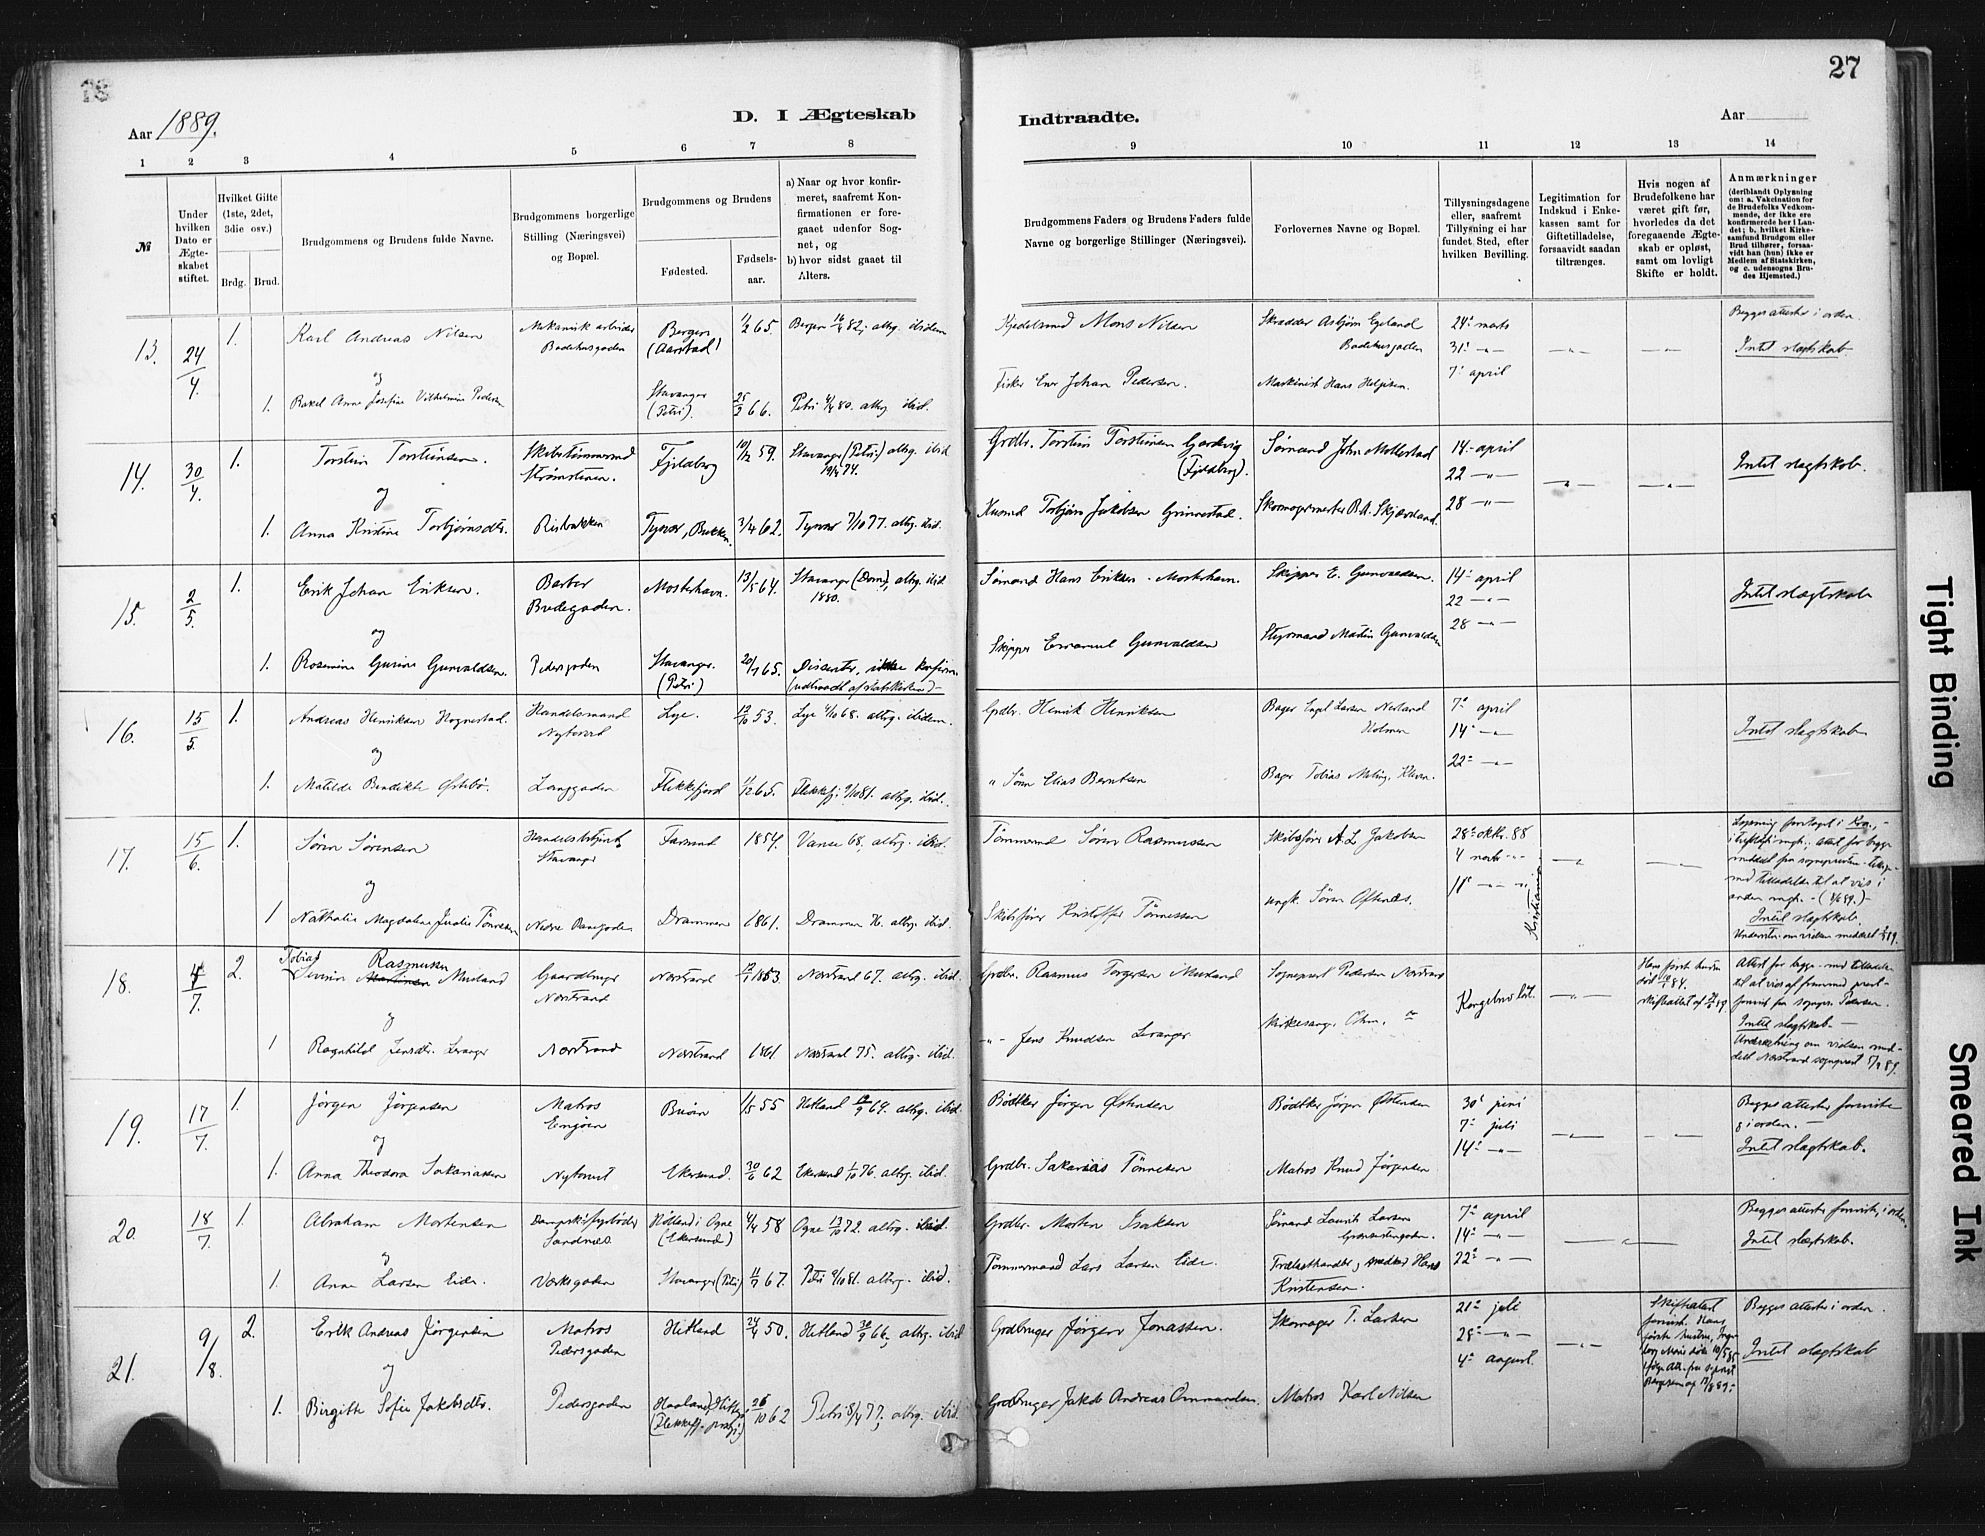 27
Aar 1889.
D. I Ægteskab
Indtraadte.
Aar
1 2 3 4 5 6 7 8 9 10 11 12 13 14
№
Under hvilken Dato er Ægteskabet stiftet.
Hvilket Gifte (1ste, 2det, 3die osv.)
Brdg. Brud.
Brudgommens og Brudens fulde Navne.
Brudgommens borgerlige Stilling (Næringsvei) og Bopæl.
Brudgommens og Brudens
Fødested.
Fødselsaar.
a) Naar og hvor konfirmeret, saafremt Konfirmationen er foregaaet udenfor Sognet, og
b) hvor sidst gaaet til Alters.
Brudgommens Faders og Brudens Faders fulde Navne og borgerlige Stillinger (Næringsvei).
Forlovernes Navne og Bopæl.
Tillysningsdagene eller, saafremt Tillysning ei har fundet Sted, efter hvilken Bevilling.
Legitimation for Indskud i Enkekassen samt for Giftetilladelse, forsaavidt saadan tiltrænges.
Hvis nogen af Brudefolkene har været gift før, hvorledes da det foregaaende Ægteskab er opløst, samt om lovligt Skifte er holdt.
Anmærkninger
(deriblandt Oplysning om: a. Vakcination for de Brudefolks Vedkommende, der ikke ere konfirmerede her i Landet; b. hvilket Kirkesamfund Brudgom eller Brud tilhører, forsaavidt han (hun) ikke er Medlem af Statskirken, og c. udensogns Brudes Hjemsted.)
13. 24/4. 1. Karl Andreas Nilsen Mekanisk arbeider Badehusgaden Bergen (Aarstad) 1/2 65. altrg. ibidem Kjedelsmed Mons Nilsen Skrædder Asbjørn Egeland Badehusgaden 24 marts 31 7 april Begges attester i orden. Intet slægtskab
og
1. Rakel Anne Josefine Vilhelmine Pedersen Stavanger (Petri). 25/2 66. Petri altrg. ibid. Johan Pedersen. Maskinist Hans Helgesen.
14. 30/4. 1. Torstein Torsteinsen. Skibstømmermand Strømstenen. Fjeldberg 10/12 59. Stavanger (Petri) altrg. ibid Grdbr. Torstein Torsteinsen (Fjeldberg). Sømand John Mollestad 14 april 22 28 Intet slægtskab.
og
1. Anna Kristine Torbjørnsdtr. Risbakken Tysvær, Bokken. 3/4 62. Tysvær 7/10 77. altrg. ibid. Husmd Torbjørn Jakobsen Grinnestad. Skomagermester B.A. Skjæveland
15. 2/5. 1. Erik Johan Eriksen. Barber Bredegaden. Mosterhavn. 13/5 64. Stavanger (Dom), altrg. ibid 1880. Sømand Hans Eriksen - Mosterhavn. Skipper E. Gunvaldsen. 14 april 22 28 Intet slægtskab
og
1. Rosemine Gurine Gunvaldsen. Pedersgaden Stavanger. (Petri) 20/1 65. Dissenter, ikke konfirm. (udtraadt af statskirken) Skipper Emanuel Gunvaldsen Styrmand Martin Gunvaldsen
16. 15/5. 1. Andreas Henriksen Hognestad. Handelsmand Nytorvet Lye. 12/10 53. Lye 4/10 68. altrg. ibidem. Grdbr. Henrik Henriksen Bager Larsen Nesland Holmen 7 april 14 22 Intet slægtskab
og
1. Matilde Bendikte Østebø. Langgaden Flekkefjord 1/12 65. Flekkefj. 9/10 81. altrg. ibid. Elias Berntsen Bager Tobias Maling, Kleven.
17. 15/6. 1. Søren Sørensen Handelsbetjent Stavanger Farsund 1854. Vanse 68, altrg. ibid. Tømmermd Søren Rasmussen Skibsfører A. L. Jakobsen 28 oktbr. 88 4 novbr 11 Kristiania Lysning foretaget i Kra. Intet slægtskab.
og
1 Nathalie Magdalene Julie Tønnesen Drammen 1861. Drammen altrg. ibid. Skibsfører Kristoffer Tønnessen ungk. Søren Oftenæs.
18. 4/7. 2. Tobias Severin Rasmusen Musland Gaardbruger Nærstrand Nærstrand 1853 Nærstrand 67. altrg. ibid. Grdbr. Rasmus Torgersen Musland Sogneprest Pedersen Nærstrand Kongebrev Hans første hustru død 84. Attest for begge Intet slægtskab.
og
1 Ragnhild Jensdtr. Leranger Nærstrand Nærstrand 1861 Nærstrand 75. altrg. ibid. Jens Knudsen Leranger Kirkesang.
19. 17/7. 1. Jørgen Jørgensen Matros Engøen Buøen 55 Hetland 69. altrg. ibid. Bødtker Jørgen Østensen Bødtker Jørgen Østensen 30 juni 7 juli 14 Begges attester foreviste i orden. Intet slægtskab.
og
1. Anna Theodora Sakariasen Nytorvet Ekersund. 30/6 62 Ekersund 1/10 76. altrg. ibid. Grdbr. Sakarias Tønnesen Matros Knud Jørgensen
20. 18/7. 1. Abraham Mortensen Dampskibsfyrbøder Sandnæs Hetland i Ogne (Ekersund) 4/4 58 Ogne 13/10 72. altrg. ibid. Grdbr. Morten Isaksen Sømand Laurits Larsen 7 april 14 22 Begges attester foreviste, i orden. Intet slægtskab.
og
1. Anne Larsen Eide. Værksgaden Stavanger (Petri) 11/7 67. Petri 9/10 81. altrg. ibid. Tømmermand Lars Larsen Eide. Trælasthandler, snedker Hans Kristensen.
21. 9/8. 2. Erik Andreas Jørgensen Matros Pedersgaden Hetland 24/4 50. Hetland 30/9 66, altrg. ibid Grdbruger Jørgen Jonassen. Skomager T. Larsen 21 juli 28 4 august. Skifteattest forevist. Hans første hustru, Begges attester i orden. Intet slægtskab
og
1. Birgitte Sofie Jakobsdtr. Pedersgaden 26/10 62 Petri 8/4 77, altrg. ibid. Grdbruger Jakob Andreas Ommundsen. Matros Karl Nilsen
Tight Binding
Smeared Ink